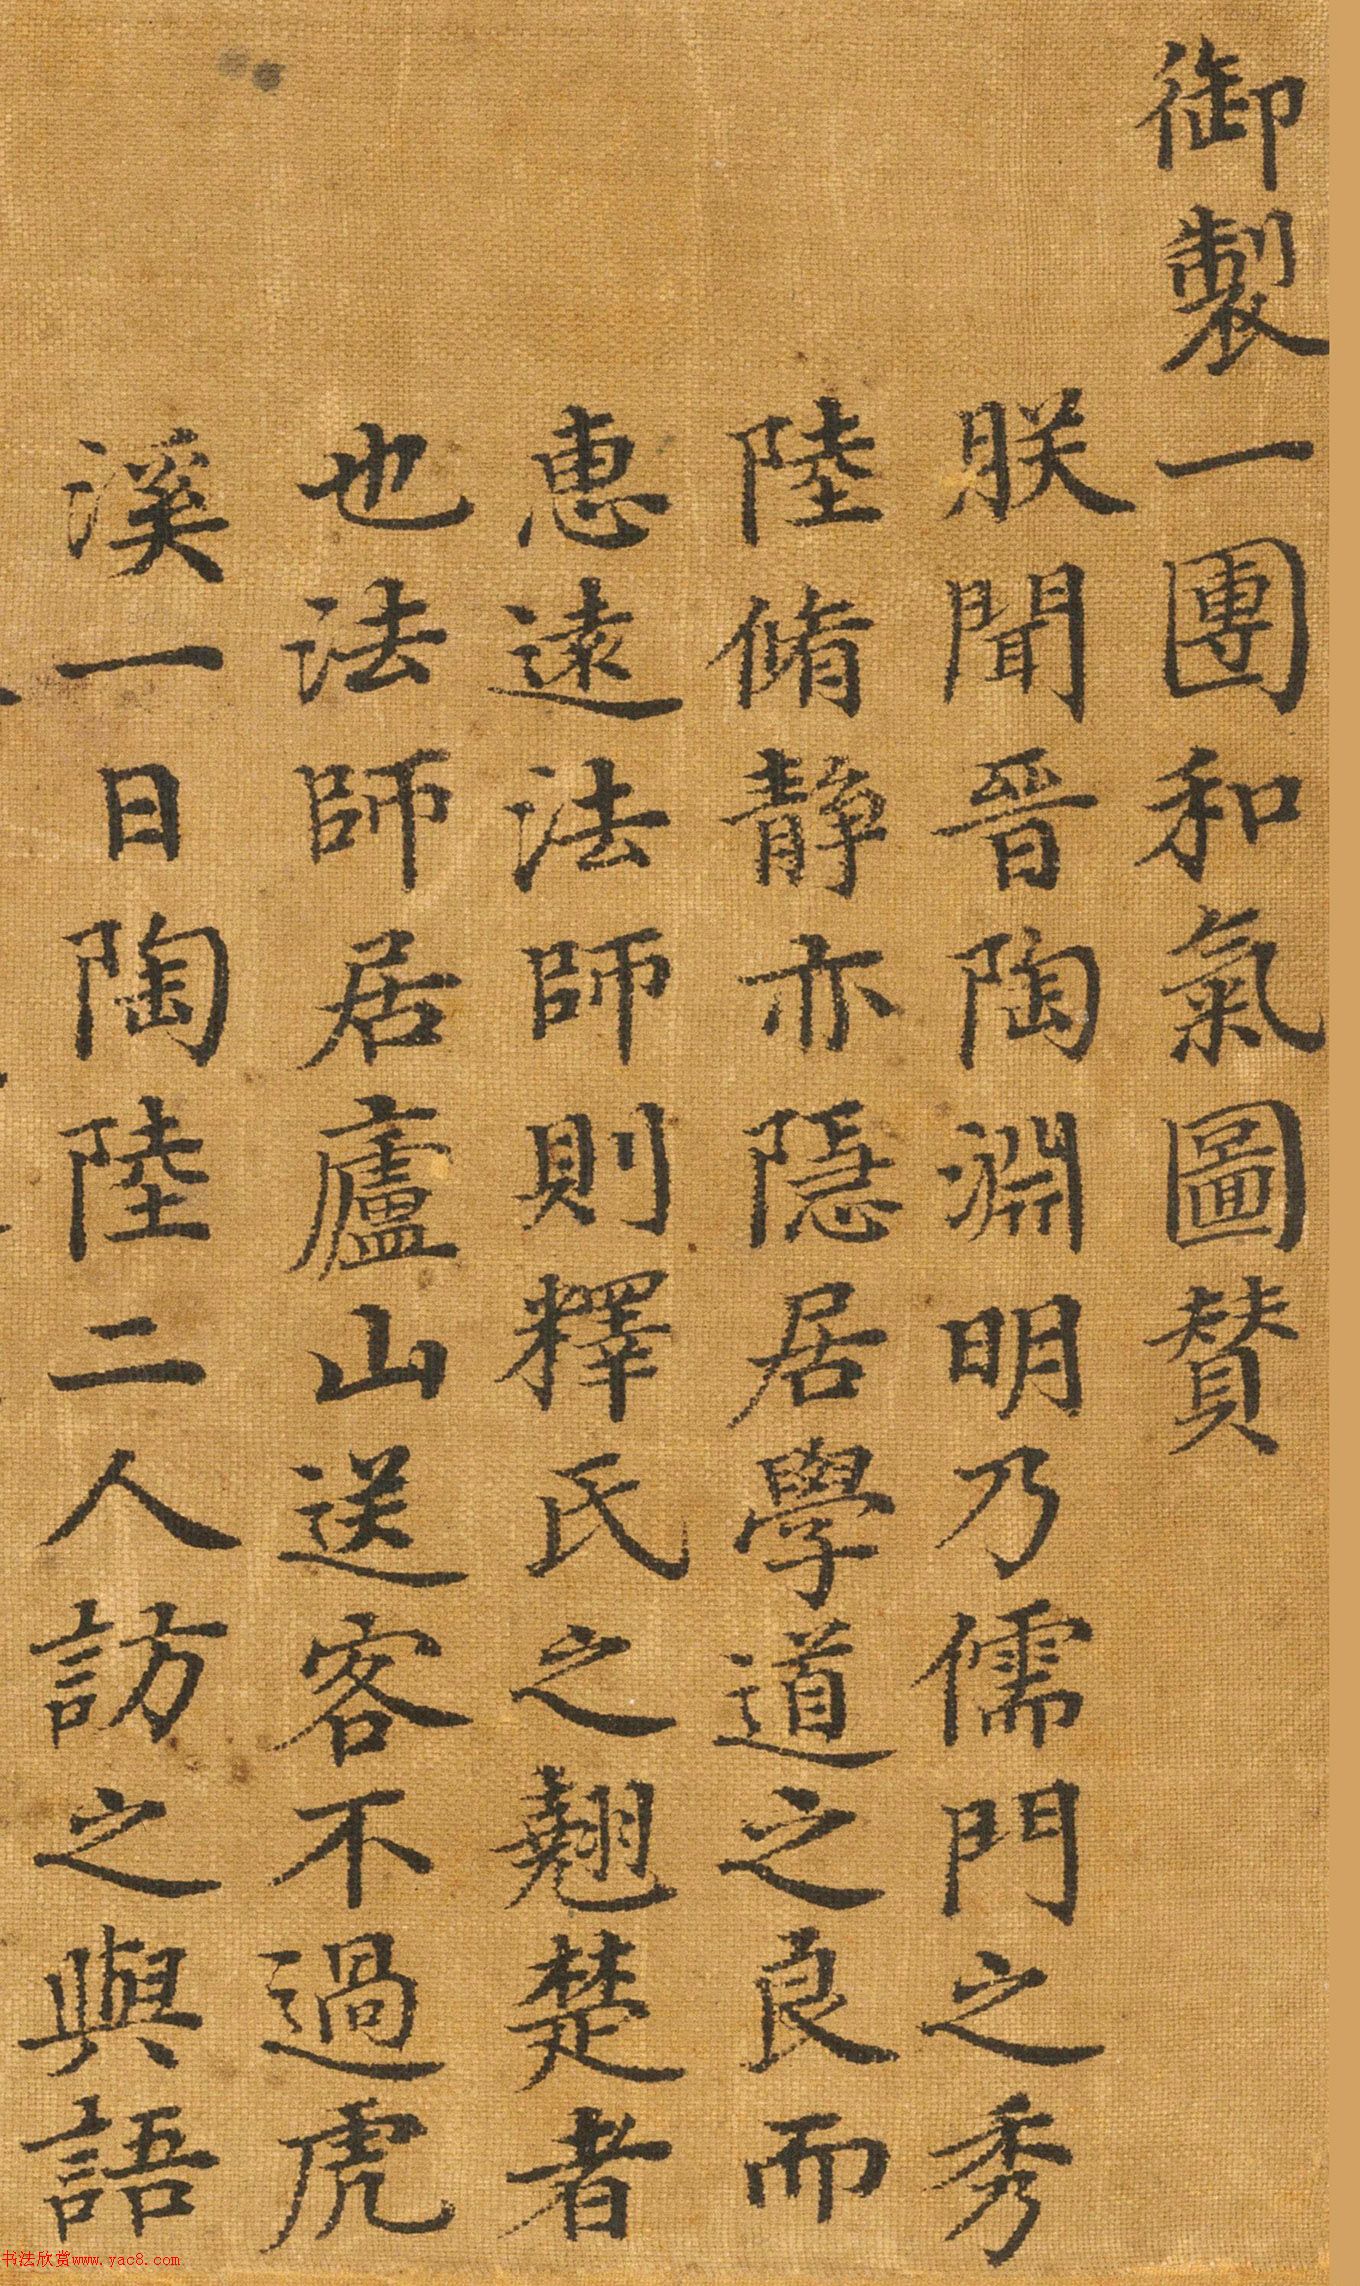 御製一團和氣圖贊
朕聞晉陶淵明乃儒門之秀
陸脩靜亦隱居學道之良而
惠遠法師則釋氏之翹楚者
也法師居廬山送客不過虎
溪一日陶陸二人訪之與語
书法欣赏www.yac8.com